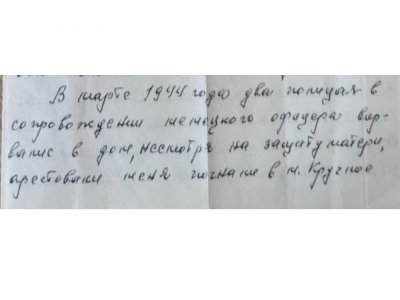 В марте 1944 года два полицая в
сопровождении немецкого офицера вор-
вались в дом, несмотря на защиту матери,
арестовали меня погнали в м. Круглое